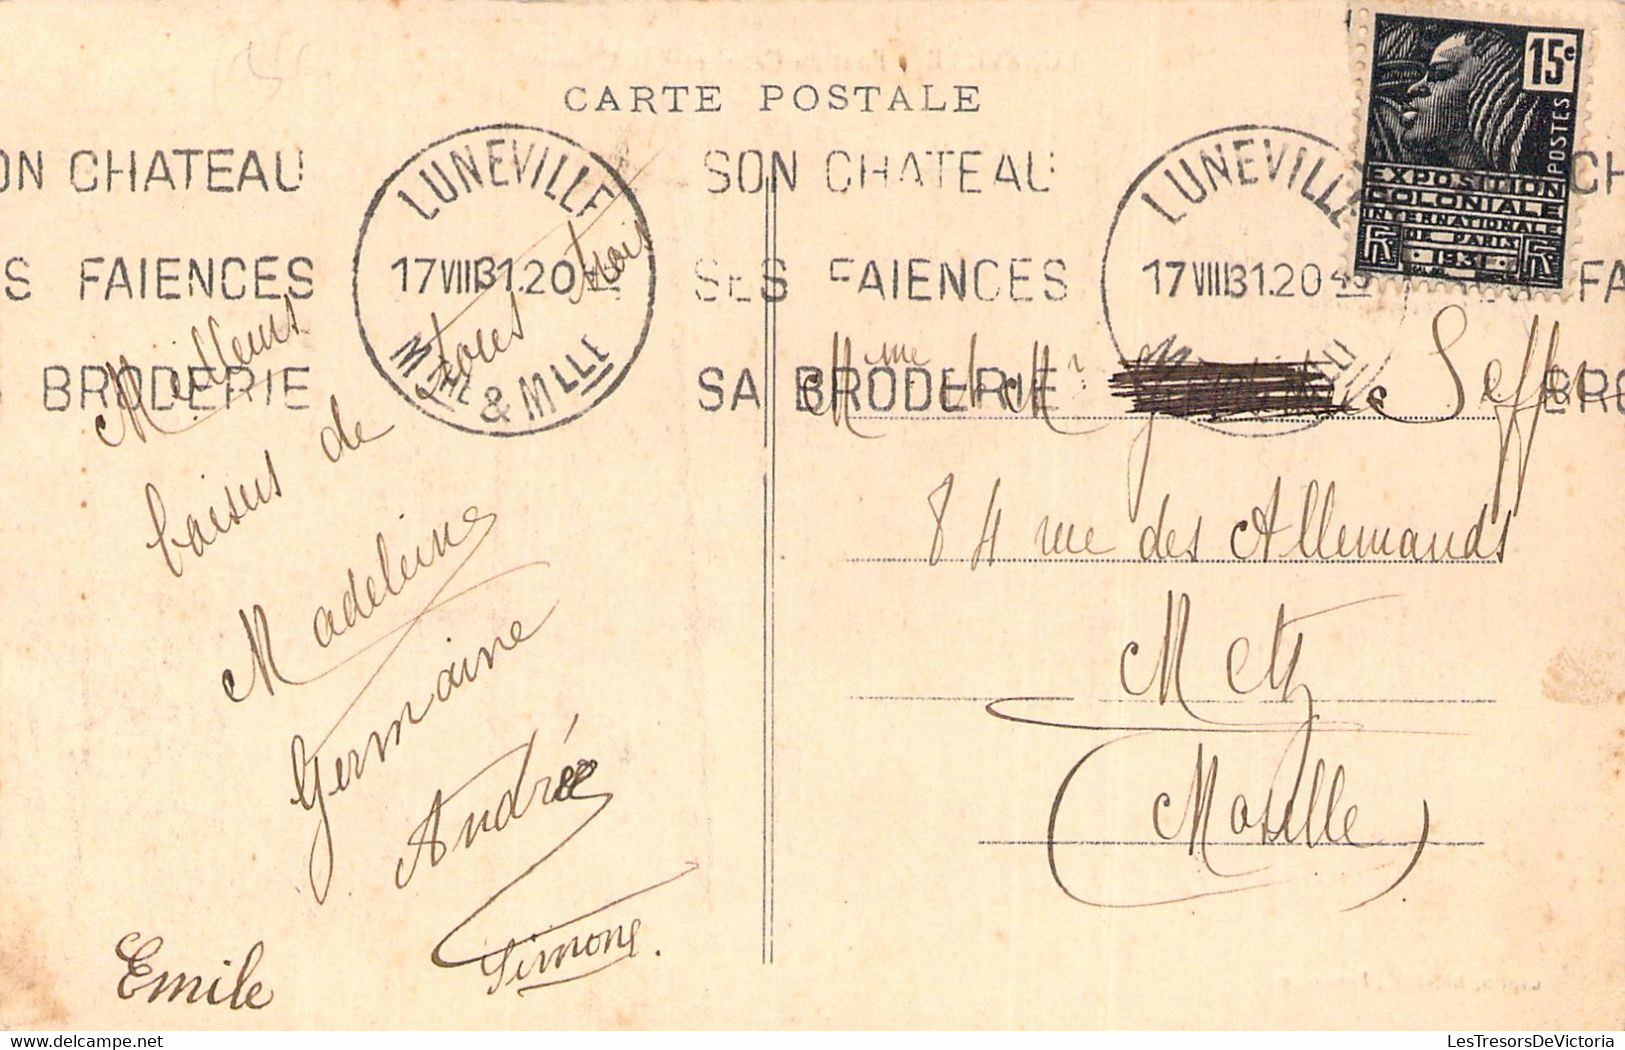 CARTE POSTALE
ON CHATEAU
S FAIENCES
BRODERIE
LUNEVILLE
17 VIII 31.20
MTHE & MLLE
SON CHATEAU
SES FAIENCES
SA BRODERIE
LUNEVILLE
17 VIII 31.20 45
CH
FA
BRO
15c
POSTES
EXPOSITION
COLONIALE
INTERNATIONALE
DE PARIS
1931
RF RF
Meilleurs
baisers de
tous trois
Madeleine
Germaine
Andrée
Simone.
Emile
Mme et Mr
84 rue des Allemands
Metz
(Moselle)
LesTresorsDeVictoria.com